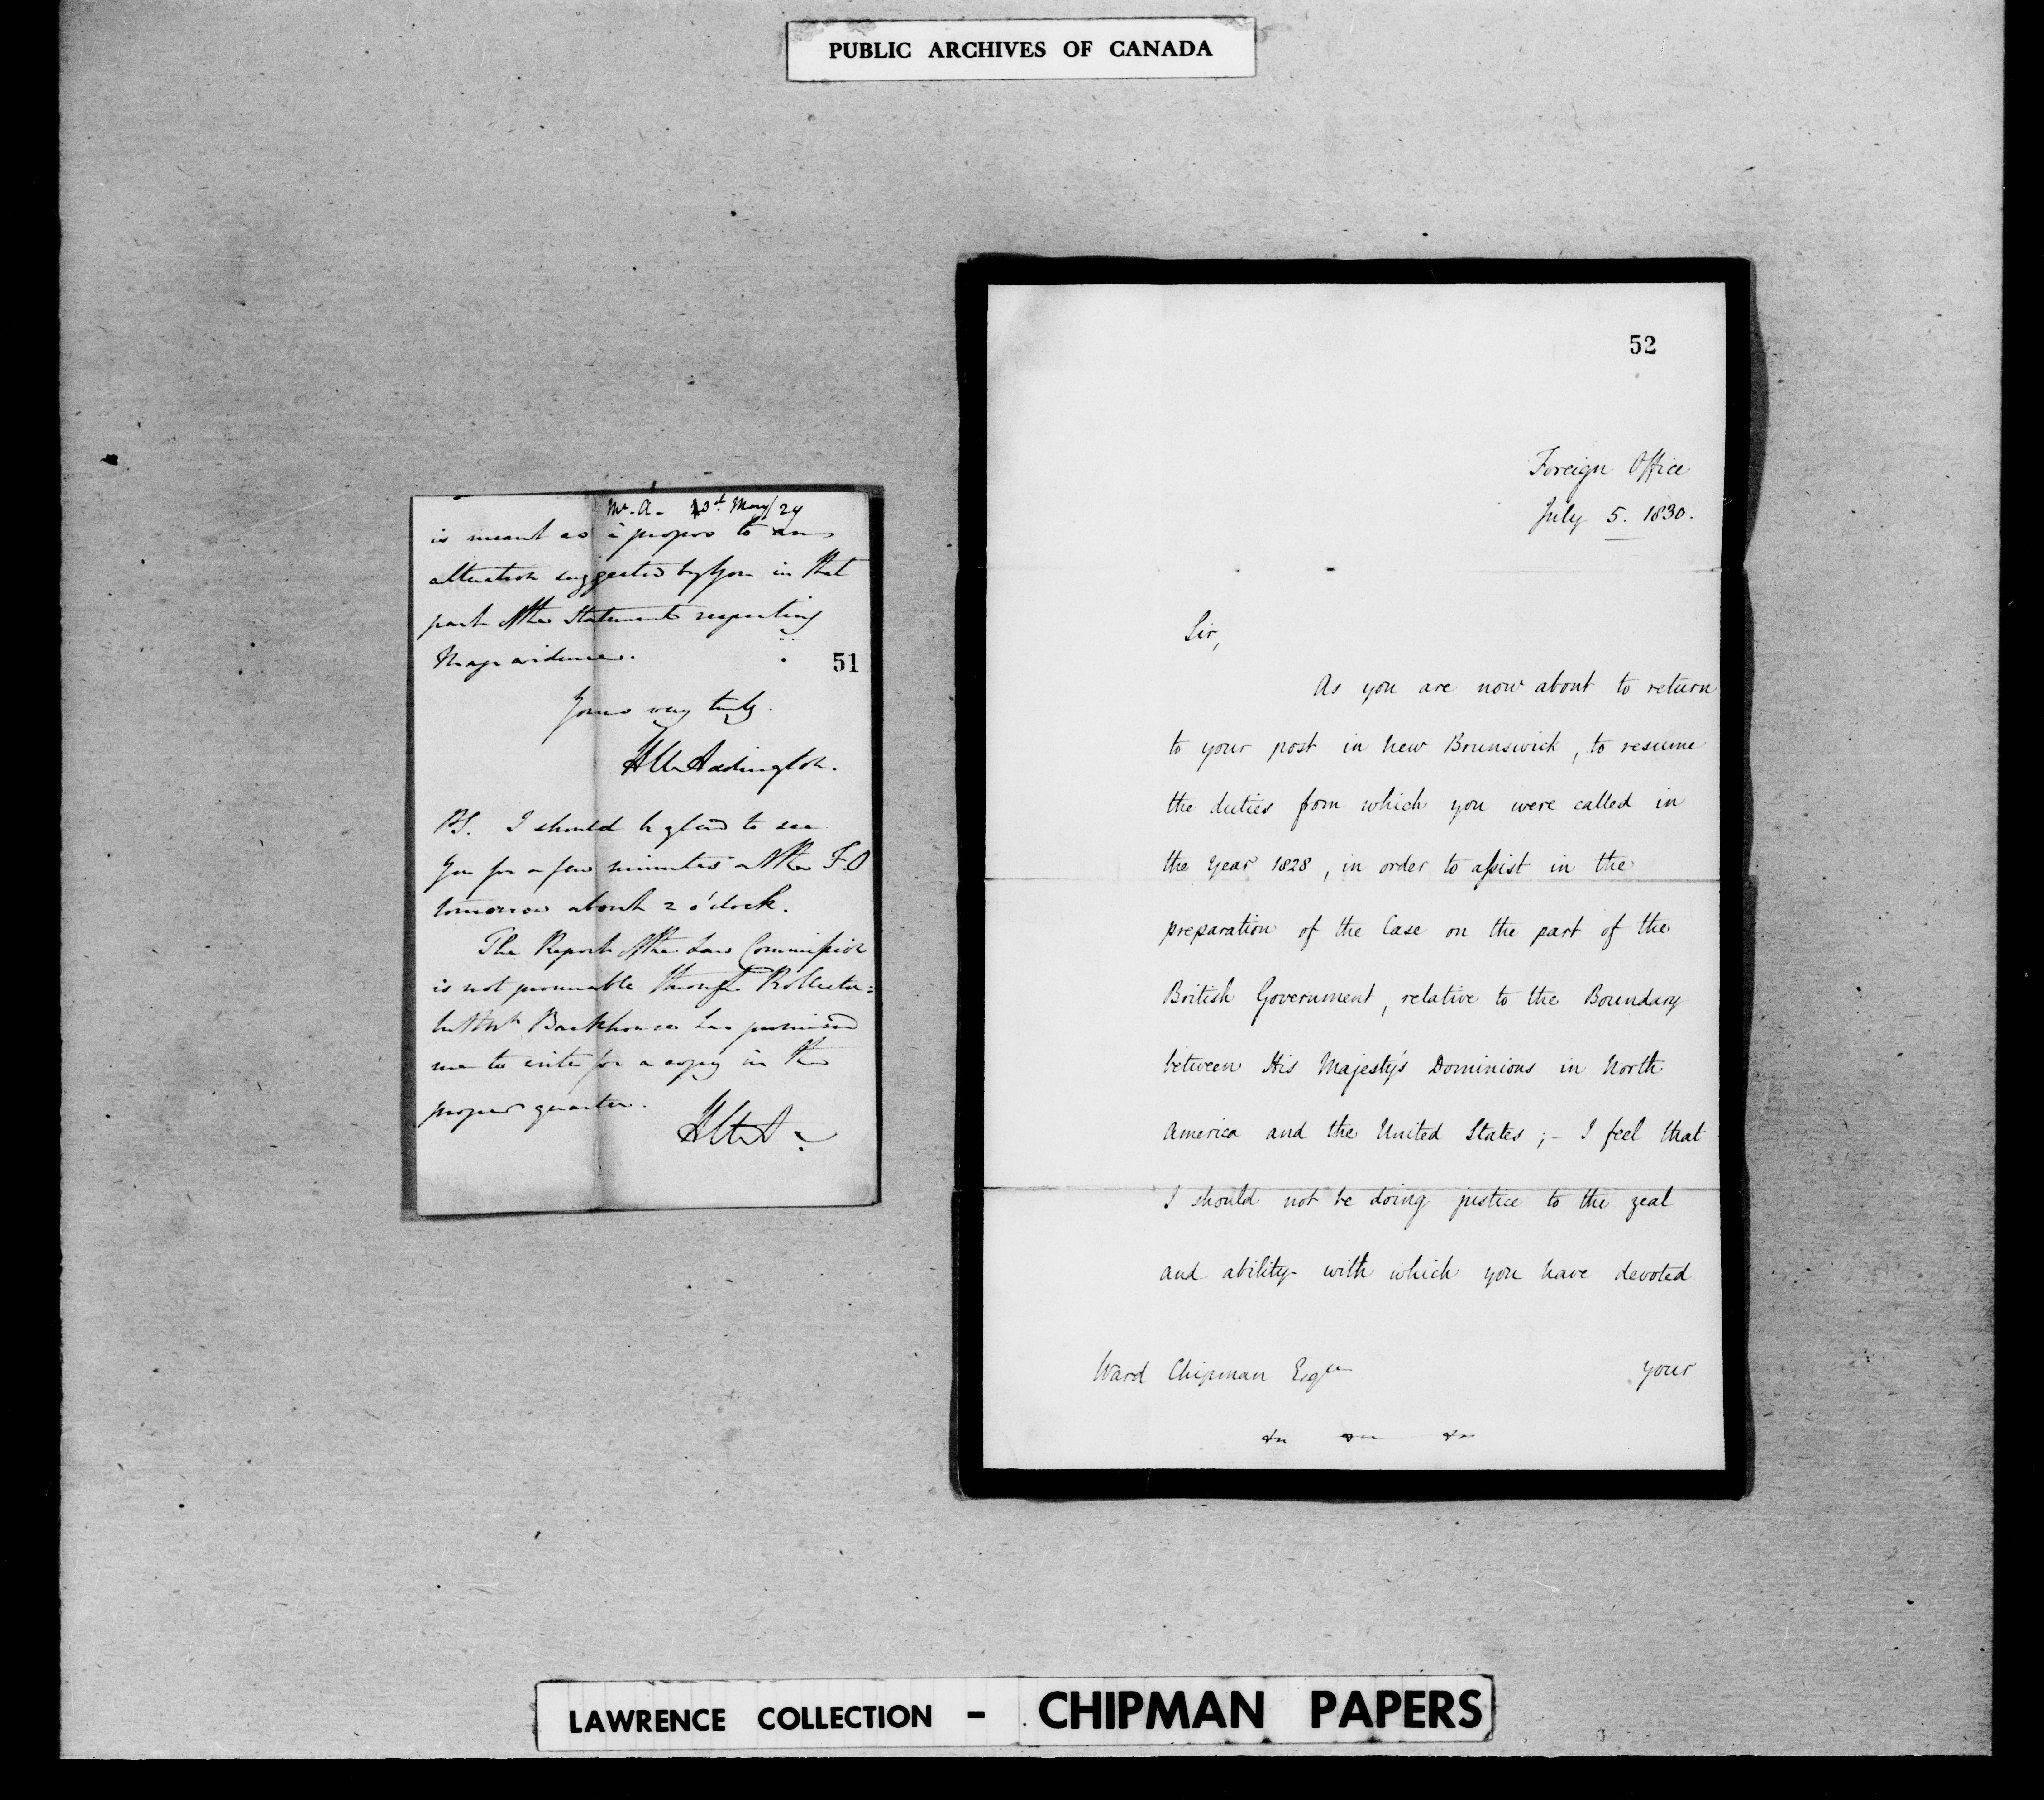 PUBLIC ARCHIVES OF CANADA
Mr. A - 23d. May/29
is meant as à propos to an
alteration suggested by you in that
part of the Statement respecting
Map evidence.
51
Yours very truly.
H U Addington.
PS. I should be glad to see
you for a few minutes at the F.O
tomorrow about 2 o'clock.
The Report of the Law Commission
is not procurable through
but Mr. Backhouse has promised
me to write for a copy in the
proper quarter.
HUA
52
Foreign Office
July 5. 1830.
Sir,
As you are now about to return
to your post in New Brunswick, to resume
the duties from which you were called in
the Year 1828, in order to assist in the
preparation of the Case on the part of the
British Government, relative to the Boundary
between His Majesty's Dominions in North
America and the United States; - I feel that
I should not be doing justice to the zeal
and ability with which you have devoted
Ward Chipman Esqre
your
LAWRENCE COLLECTION - CHIPMAN PAPERS